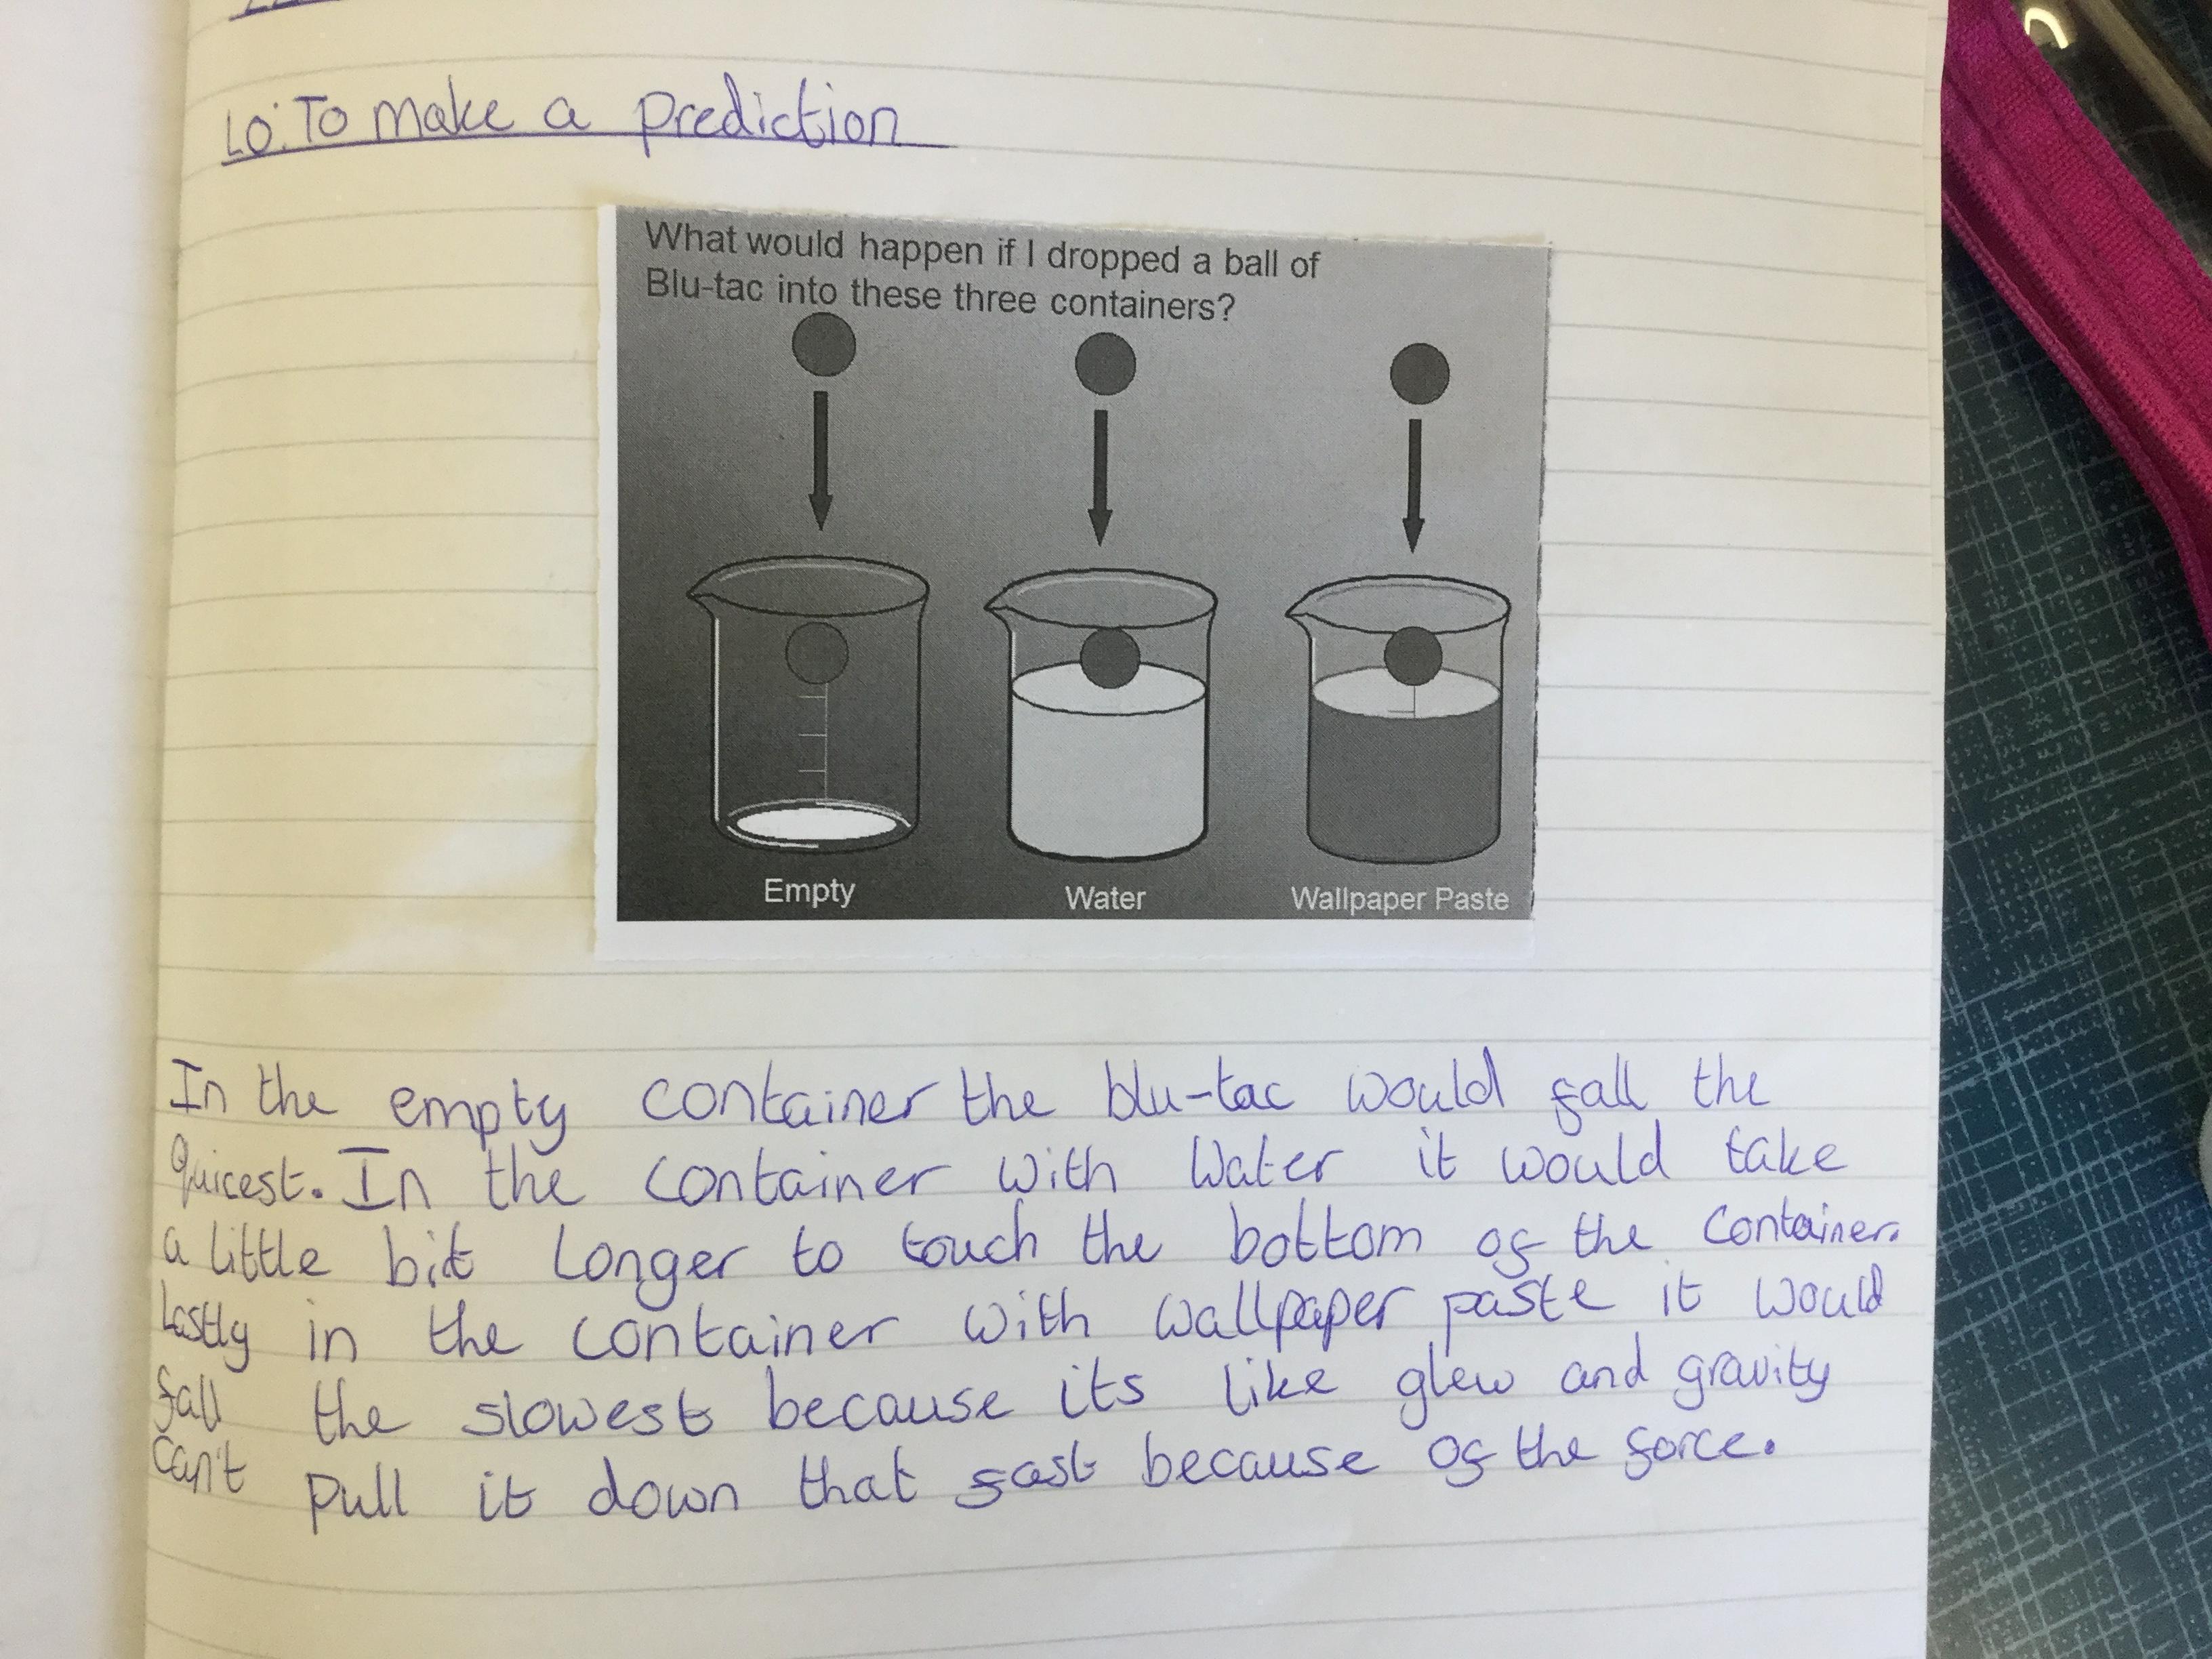 LO: To make a prediction
What would happen if I dropped a ball of
Blu-tac into these three containers?
Empty
Water
Wallpaper Paste
In the empty container the blu-tac would fall the
quicest. In the container with water it would take
a little bit longer to touch the bottom of the container.
Lastly in the container with wallpaper paste it would
fall the slowest because its like glew and gravity
can't pull it down that fast because of the force.